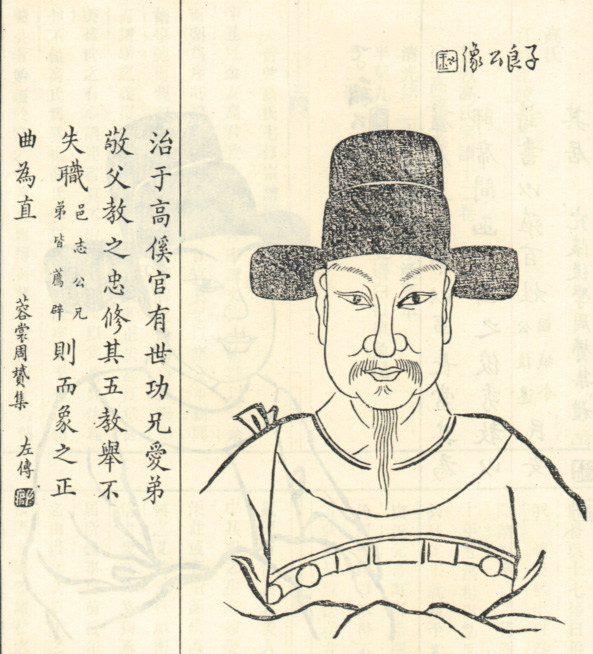 子良公像
治于高傒官有世功兄愛弟
敬父教之忠修其五教舉不
失職邑志公兄弟皆薦辟則而象之正
曲為直
蓉裳周贇集 左傳